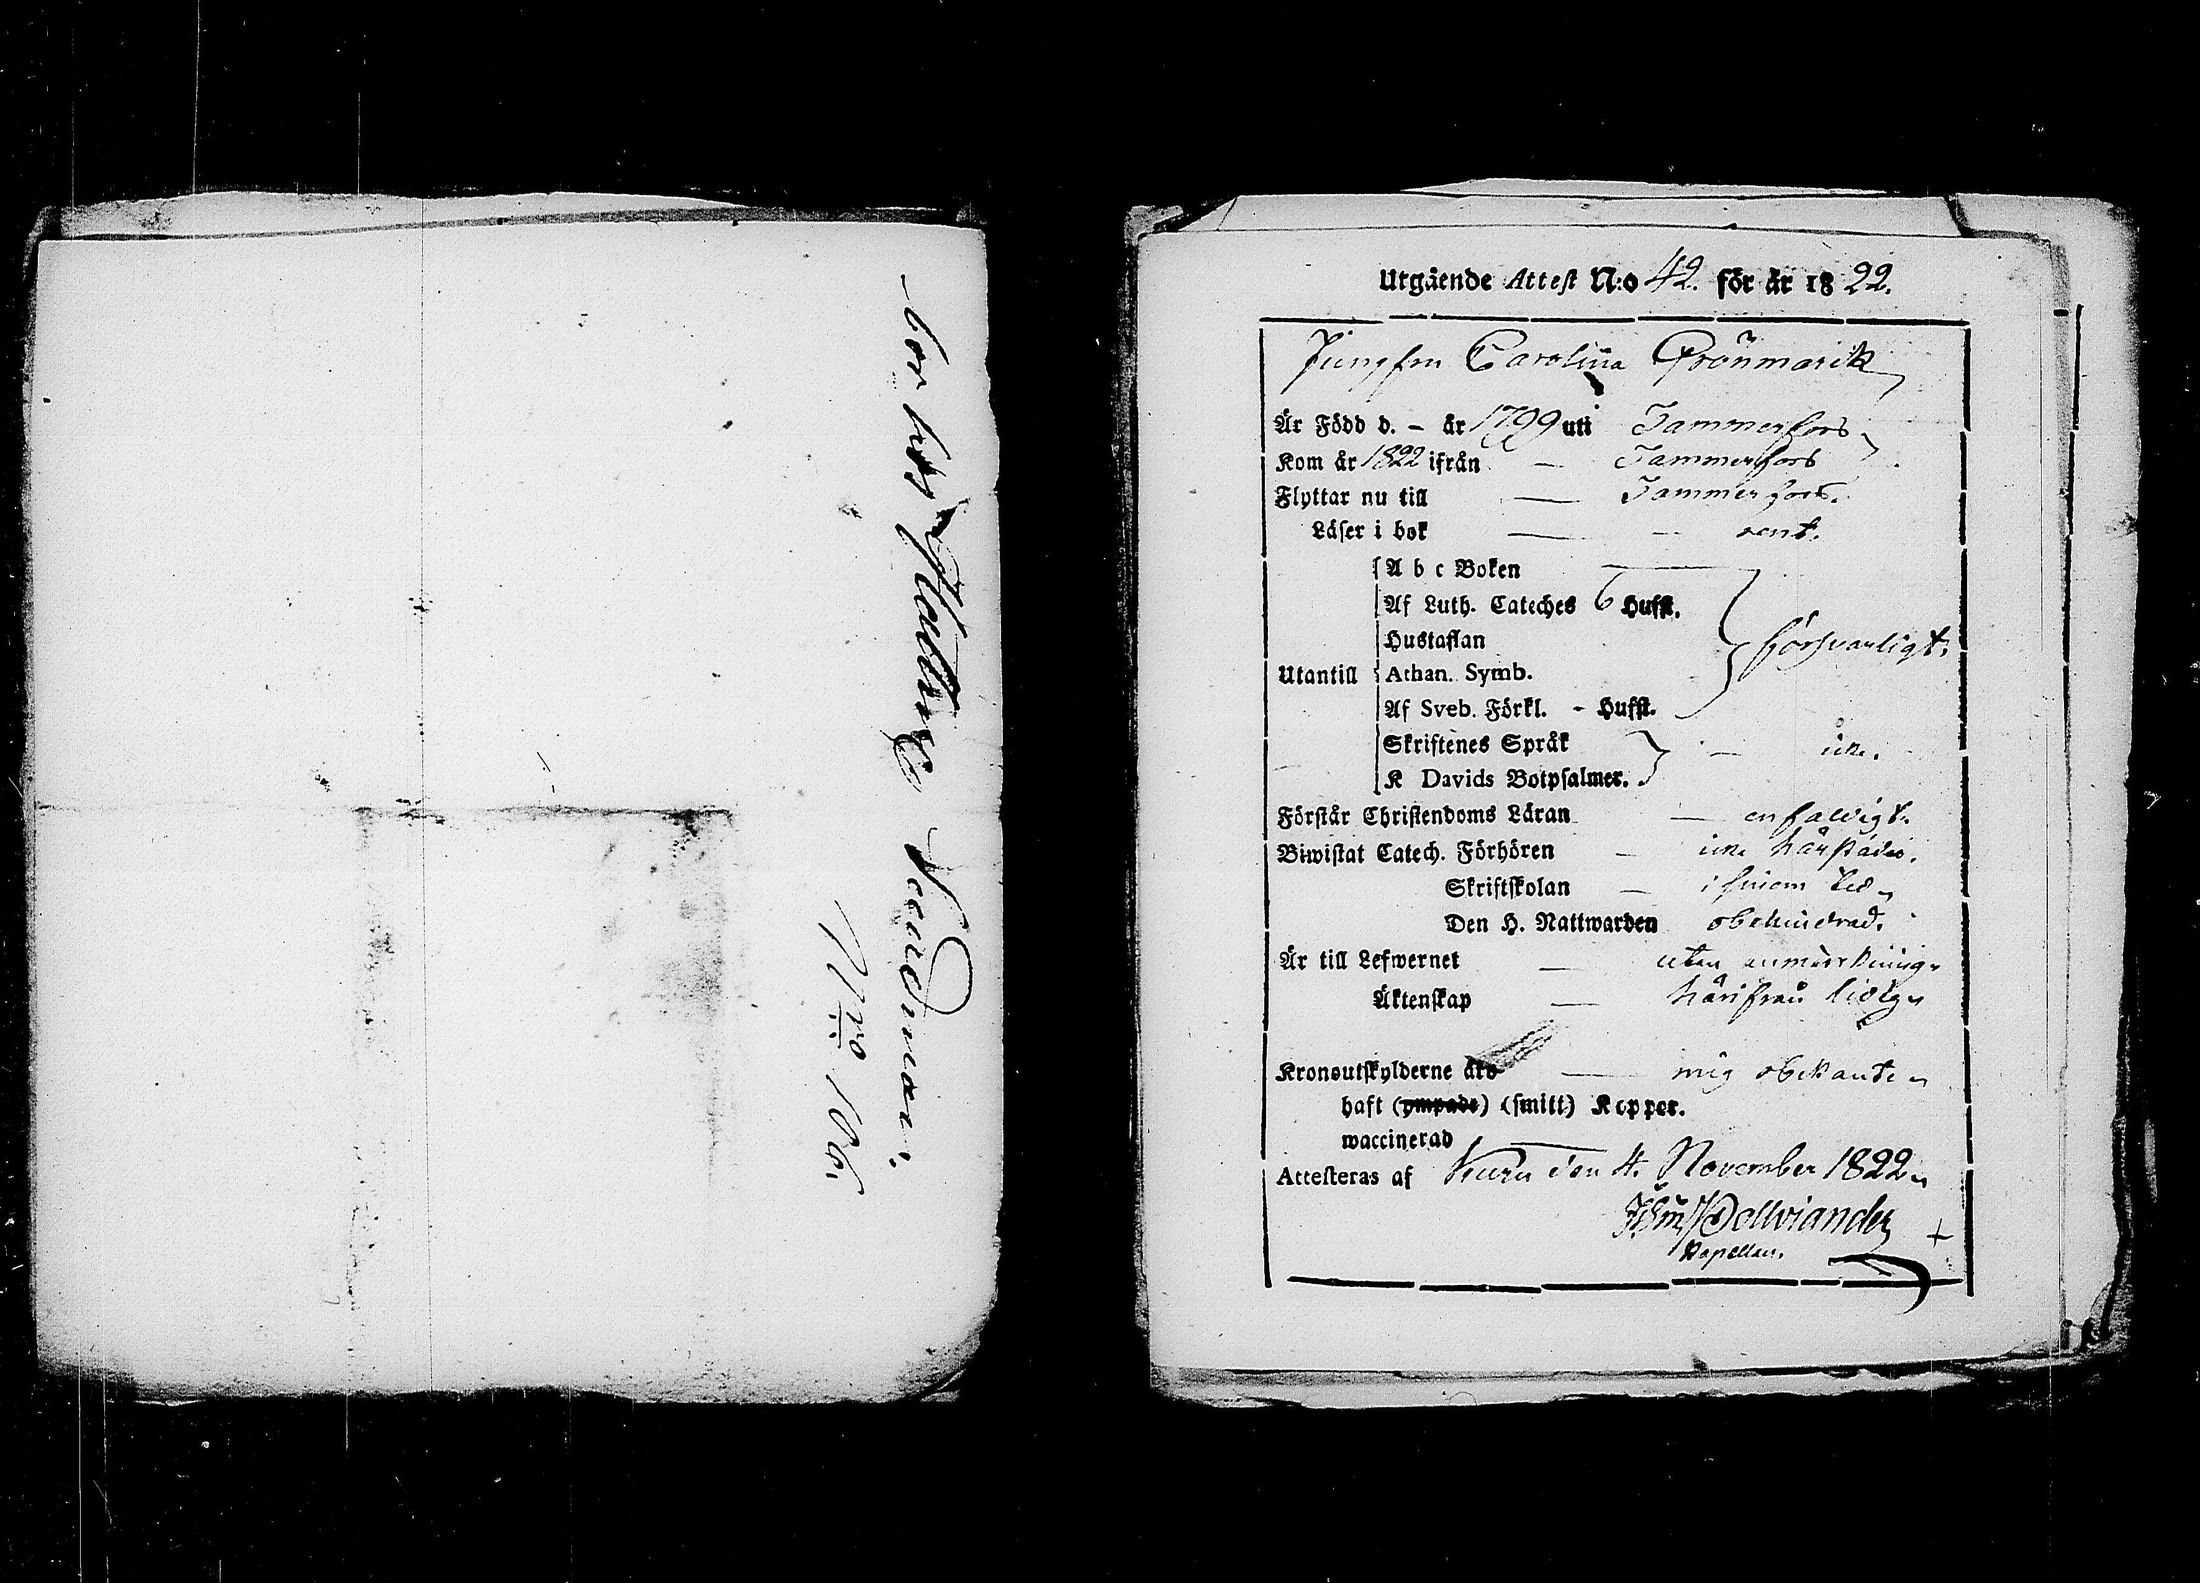 bor hos Handl:
Sandman.
Nro 108.
Utgående Attest N:o 42. för år 1822.
Jungfru Carolina Grönmarck
Är Född d. – år 1799 uti Tammerfors
Kom år 1822 ifrån — Tammerfors
Flyttar nu till — Tammerfors.
Läser i bok — rent.
A b c Boken
Af Luth. Cateches 6 Hufst.
Hustaflan
försvarligt.
Utantill Athan. Symb.
Af Sveb. Förkl. - Hufst.
Skriftenes Språk
icke.
K Davids Botpsalmer.
Förstår Christendoms Läran — enfaldigt.
Biwistat Catech. Förhören — icke härstädes.
Skriftskolan — i sinom tid
Den H. Nattwarden obehindrad.
Är till Lefwernet — utan anmärkning
Äktenskap — härifrån ledig
Kronoutskylderne äro — mig obekante
haft (ympade) (smitt) Koppor.
waccinerad —
Attesteras af Kuru den 4. November 1822
Dollviander
Kapellan.